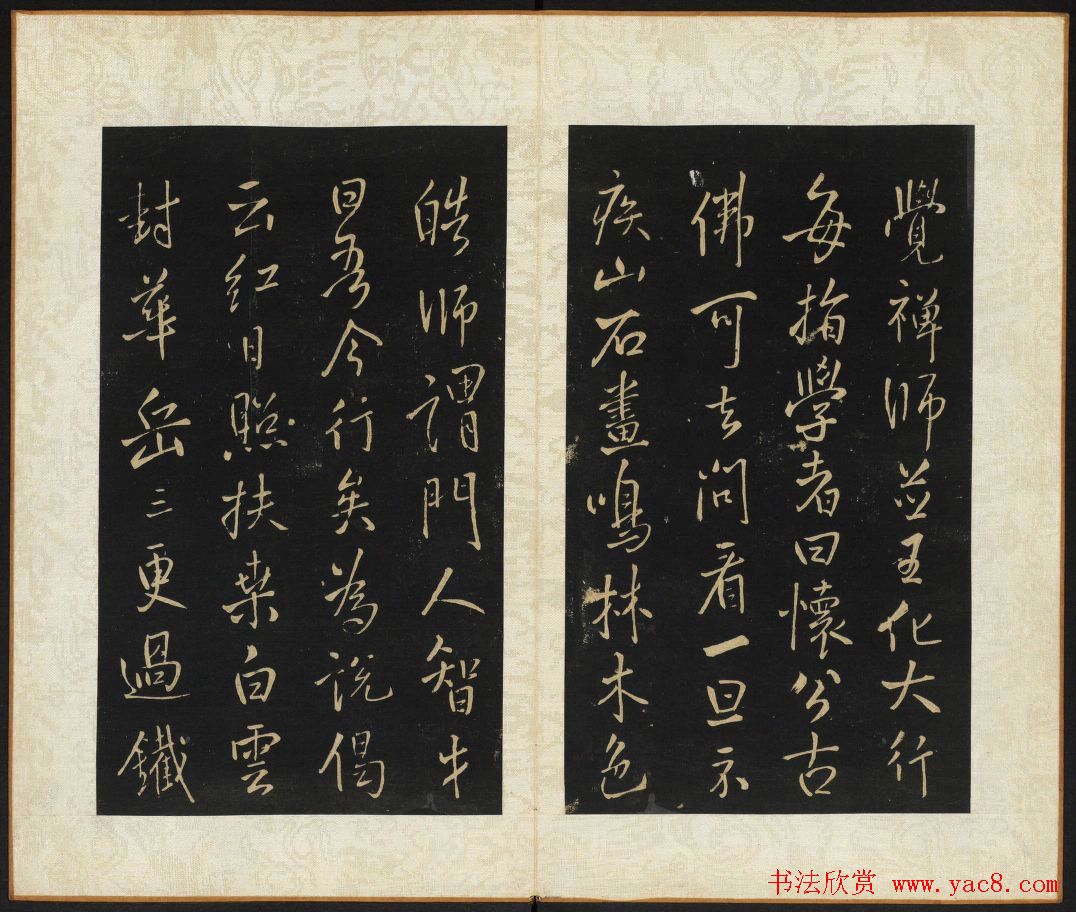 覺禅師並王化大行
每指學者曰懷公古
佛可去问看一旦示
疾山石晝鳴林木色
皓师謂門人智才
曰吾今行矣為説偈
云紅日照扶桒白雲
封華岳三更過鐵
书法欣赏 www.yac8.com